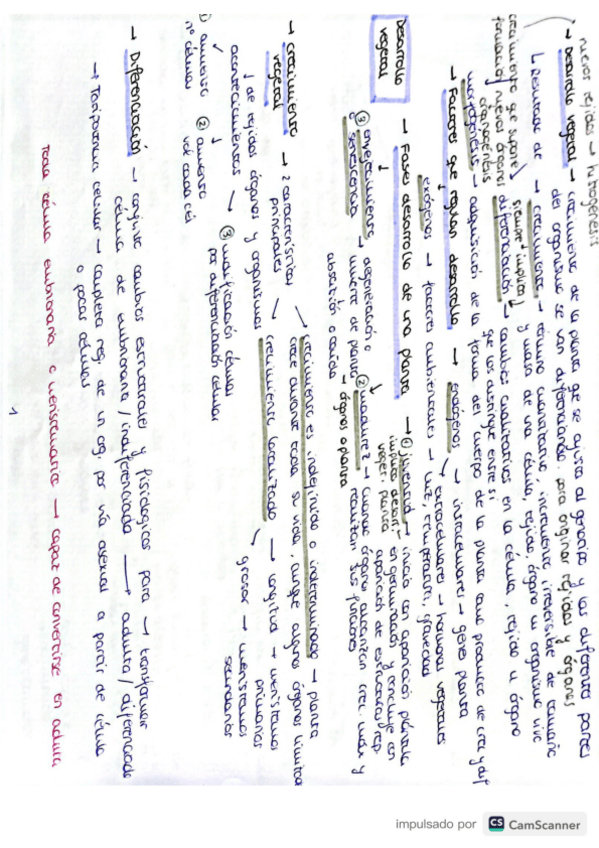 → Desarrollo vegetal → crecimiento de la planta que se ajusta al genotipo y las diferentes partes
del organismo se van diferenciando para originar tejidos y órganos
nuevos tejidos → histogénesis
↳ Resultado de → crecimiento → término cuantitativo, incremento irreversible de tamaño
y masa de una célula, tejido, órgano u organismo vivo
crecimiento que supone
formación nuevos órganos
organogénesis
siempre implica
diferenciación → cambios cualitativos en la célula, tejido u órgano
que los distingue entre sí
morfogénesis → adquisición de la forma del cuerpo de la planta como producto de crec y dif
→ Factores que regulan desarrollo → endógenos → intracelulares → genes planta
extracelulares → hormonas vegetales
exógenos → factores ambientales → luz, temperatura, gravedad
Desarrollo
vegetal
→ Fases desarrollo de una planta → ① juventud → inicia con aparición plántula
en germinación y concluye en
aparición de estructuras rep.
② madurez → cuando órganos alcanzan crec. máx y
realizan sus funciones
③ envejecimiento
senescencia → degeneración o
muerte de planta
abscisión o caída → órganos o planta
→ crecimiento
vegetal → 2 características
principales → crecimiento es indefinido o indeterminado → planta
crece durante toda su vida, aunque algunos órganos limitan
crecimiento localizado → longitud → meristemos
primarios
grosor → meristemos
secundarios
↓ de tejidos órganos y organismos
acontecimientos → ③ modificación células
por diferenciación celular
① aumento
nº células
② aumento
vol cada cél
→ Diferenciación → conjunto cambios estructurales y fisiológicos para → transformar
célula de embrionaria / indiferenciada → adulta / diferenciada
→ Totipotencia celular → completa reg. de un org. por vía asexual a partir de célula
o pocas células
Toda célula embrionaria o meristemática → capaz de convertirse en adulta
1
impulsado por CS CamScanner